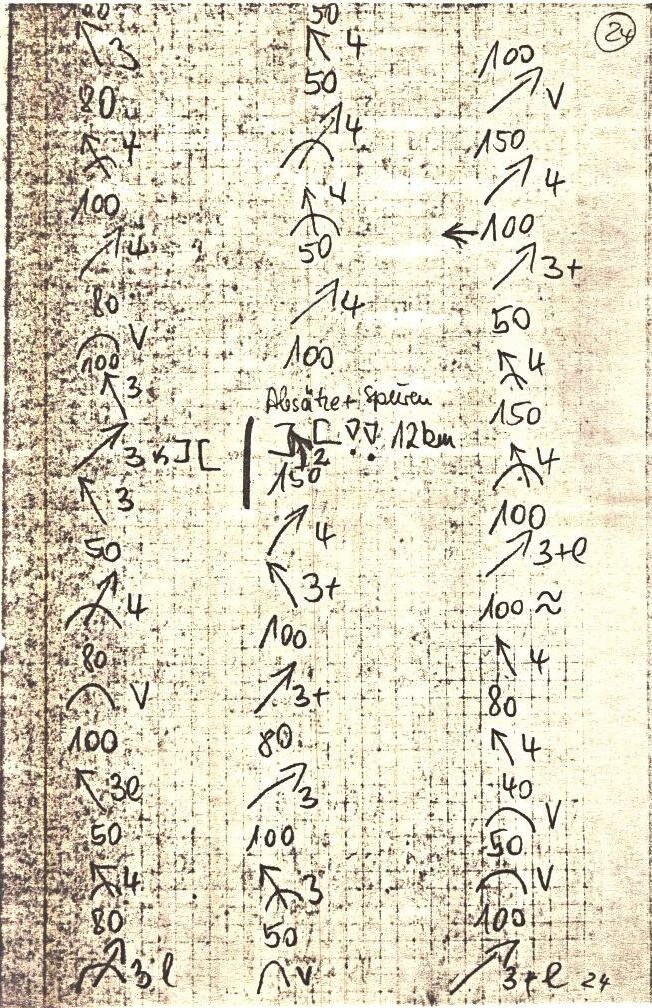 24
3
80
4
100
4
80
V
100
3
3 K ] [
3
50
4
80
V
100
3l
50
4
80
3 l
50
4
50
4
4
50
4
100
Absätze + Spuren
] [ ∇∇ 12 km
2
150
4
3+
100
3+
80
3
100
3
50
V
100
V
150
4
← 100
3+
50
4
150
4
100
3+l
100 ≈
4
80
4
40
V
50
V
100
3+l 24